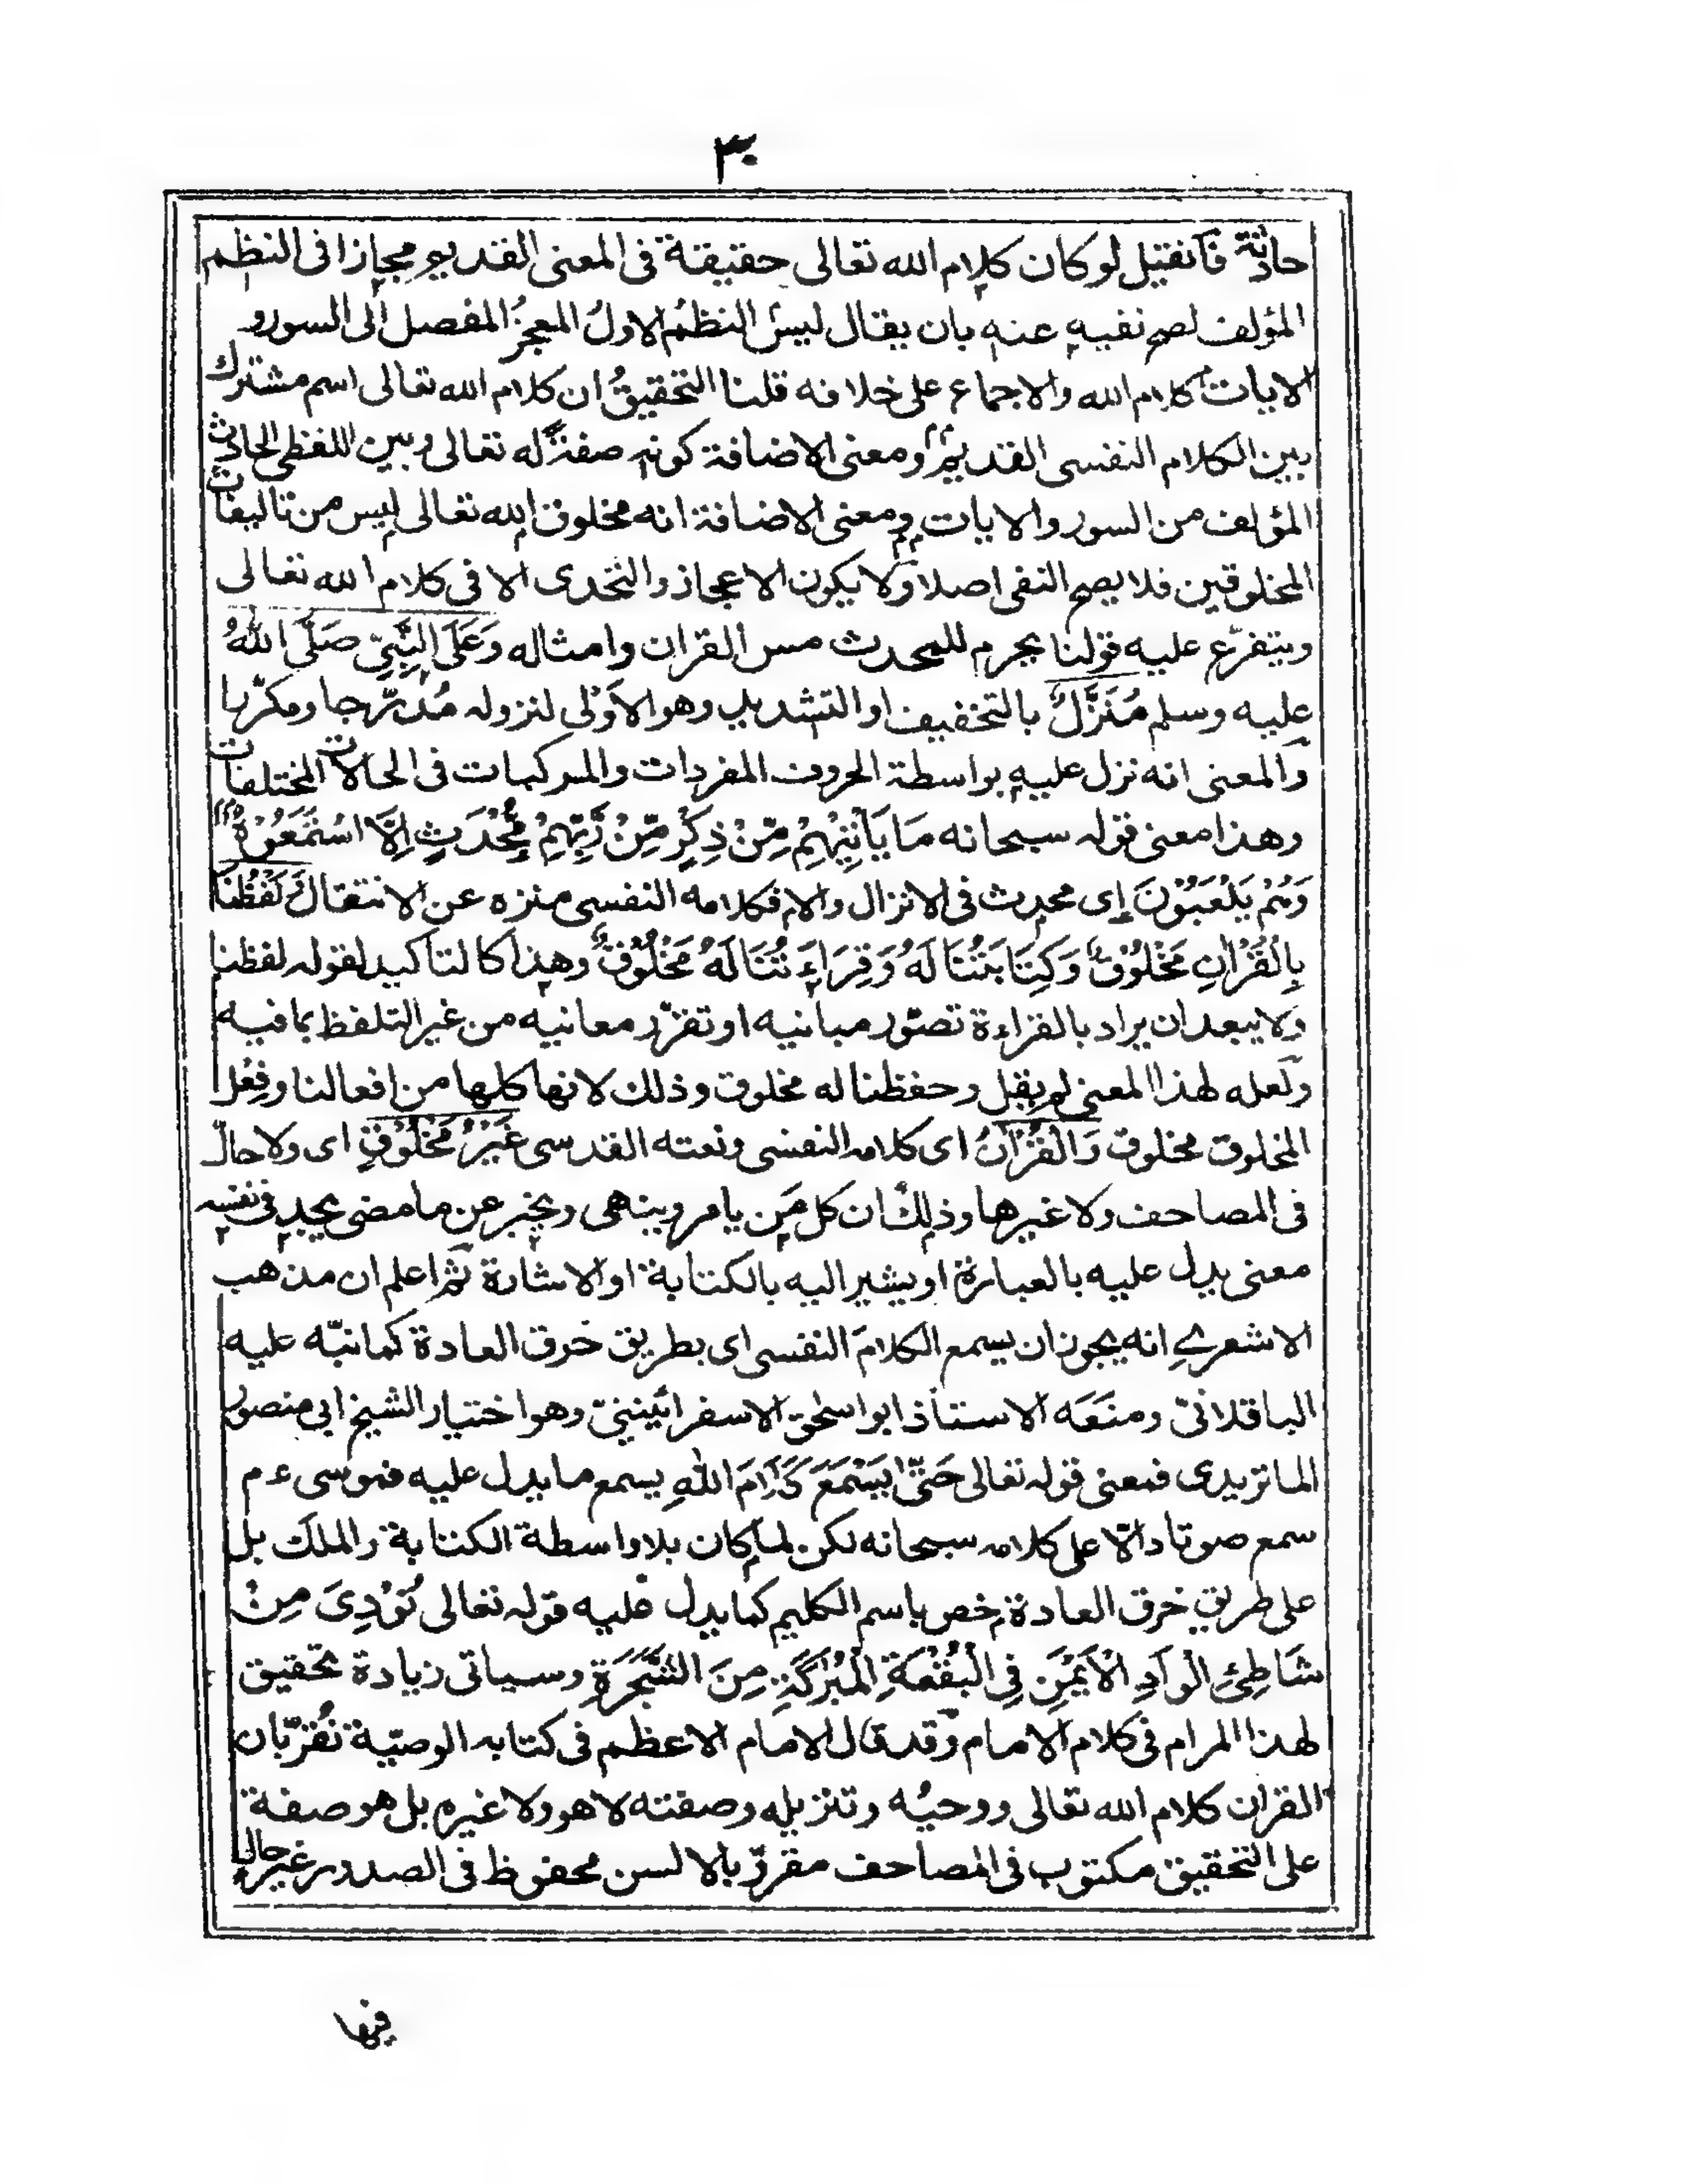 ٣٠
حادثة فان قيل لو كان كلام الله تعالى حقيقة فى المعنى القديم مجازا فى النظم
المؤلف لصح نفيه عنه بان يقال ليس النظمُ الاولُ المعجزُ المفصل الى السور و
الايات كلام الله والاجماع على خلافه قلنا التحقيقُ ان كلام الله تعالى اسم مشترك
بين الكلام النفسى القديم ومعنى الاضافة كونه صفةً له تعالى وبين اللفظى الحادث
المؤلف من السور والايات ومعنى الاضافة انه مخلوق الله تعالى ليس من تاليفات
المخلوقين فلا يصح النفى اصلا ولا يكون الاعجاز والتحدى الا فى كلام الله تعالى
ويتفرّع عليه قولنا يحرم للمحدث مس القران وامثاله وَعَلَى النَّبِيِّ صَلَّى اللهُ
عليه وسلم مُنَزَّلٌ بالتخفيف او التشديد وهو الاَوْلى لنزوله مُدَرّجا ومكرّرا
والمعنى انه نزل عليه بواسطة الحروف المفردات والمركبات فى الحالات المختلفات
وهذا معنى قوله سبحانه مَا يَأْتِيْهِمْ مِّنْ ذِكْرٍ مِّنْ رَّبِّهِمْ مُّحْدَثٍ اِلَّا اسْتَمَعُوْهُ
وَهُمْ يَلْعَبُوْنَ اى محدث فى الانزال والا فكلامه النفسى منزه عن الانتقال لَفْظُنَا
بِالْقُرْاٰنِ مَخْلُوْقٌ وَكِتَابَتُنَا لَهُ وَقِرَاءَتُنَا لَهُ مَخْلُوْقٌ وهذا كالتاكيد لقوله لفظنا
ولا يبعد ان يراد بالقراءة تصوّر مبانيه او تقرّر معانيه من غير التلفظ بما فيه
ولعله لهذا المعنى لم يقل وحفظنا له مخلوق وذلك لانها كلها من افعالنا وفِعْل
المخلوق مخلوق وَالْقُرْاٰنُ اى كلامه النفسى ونعته القدسى غَيْرُ مَخْلُوْقٍ اى ولا حالّ
فى المصاحف ولا غيرها وذلك ان كل مَن يامر وينهى ويخبر عن ما مضى يجد فى نفسه
معنى يدل عليه بالعبارة او يشير اليه بالكتابة او الاشارة ثم اعلم ان مذهب
الاشعرے انه يجوز ان يسمع الكلامَ النفسى اى بطريق خرق العادة كما نبّه عليه
الباقلانىّ ومنَعَه الاستاذ ابو اسحٰق الاسفرائينىّ وهو اختيار الشيخ ابى منصور
الماتريدى فمعنى قوله تعالى حَتّٰى يَسْمَعَ كَلَامَ اللهِ يسمع ما يدل عليه فموسى ءم
سمع صوتا دالّا على كلامه سبحانه لكن لما كان بلا واسطة الكتابة والملَك بل
على طريق خرق العادة خص باسم الكليم كما يدل عليه قوله تعالى نُوْدِىَ مِنْ
شَاطِئِ الْوَادِ الْاَيْمَنِ فِى الْبُقْعَةِ الْمُبٰرَكَةِ مِنَ الشَّجَرَةِ وسياتى زيادة تحقيق
لهذا المرام فى كلام الامام وقد قال الامام الاعظم فى كتابه الوصيّة نُقرّ بان
القران كلام الله تعالى ووحيُه وتنزيله وصفته لا هو ولا غيره بل هو صفة
على التحقيق مكتوب فى المصاحف مقروّ بالالسن محفوظ فى الصدور غير حال
فيها